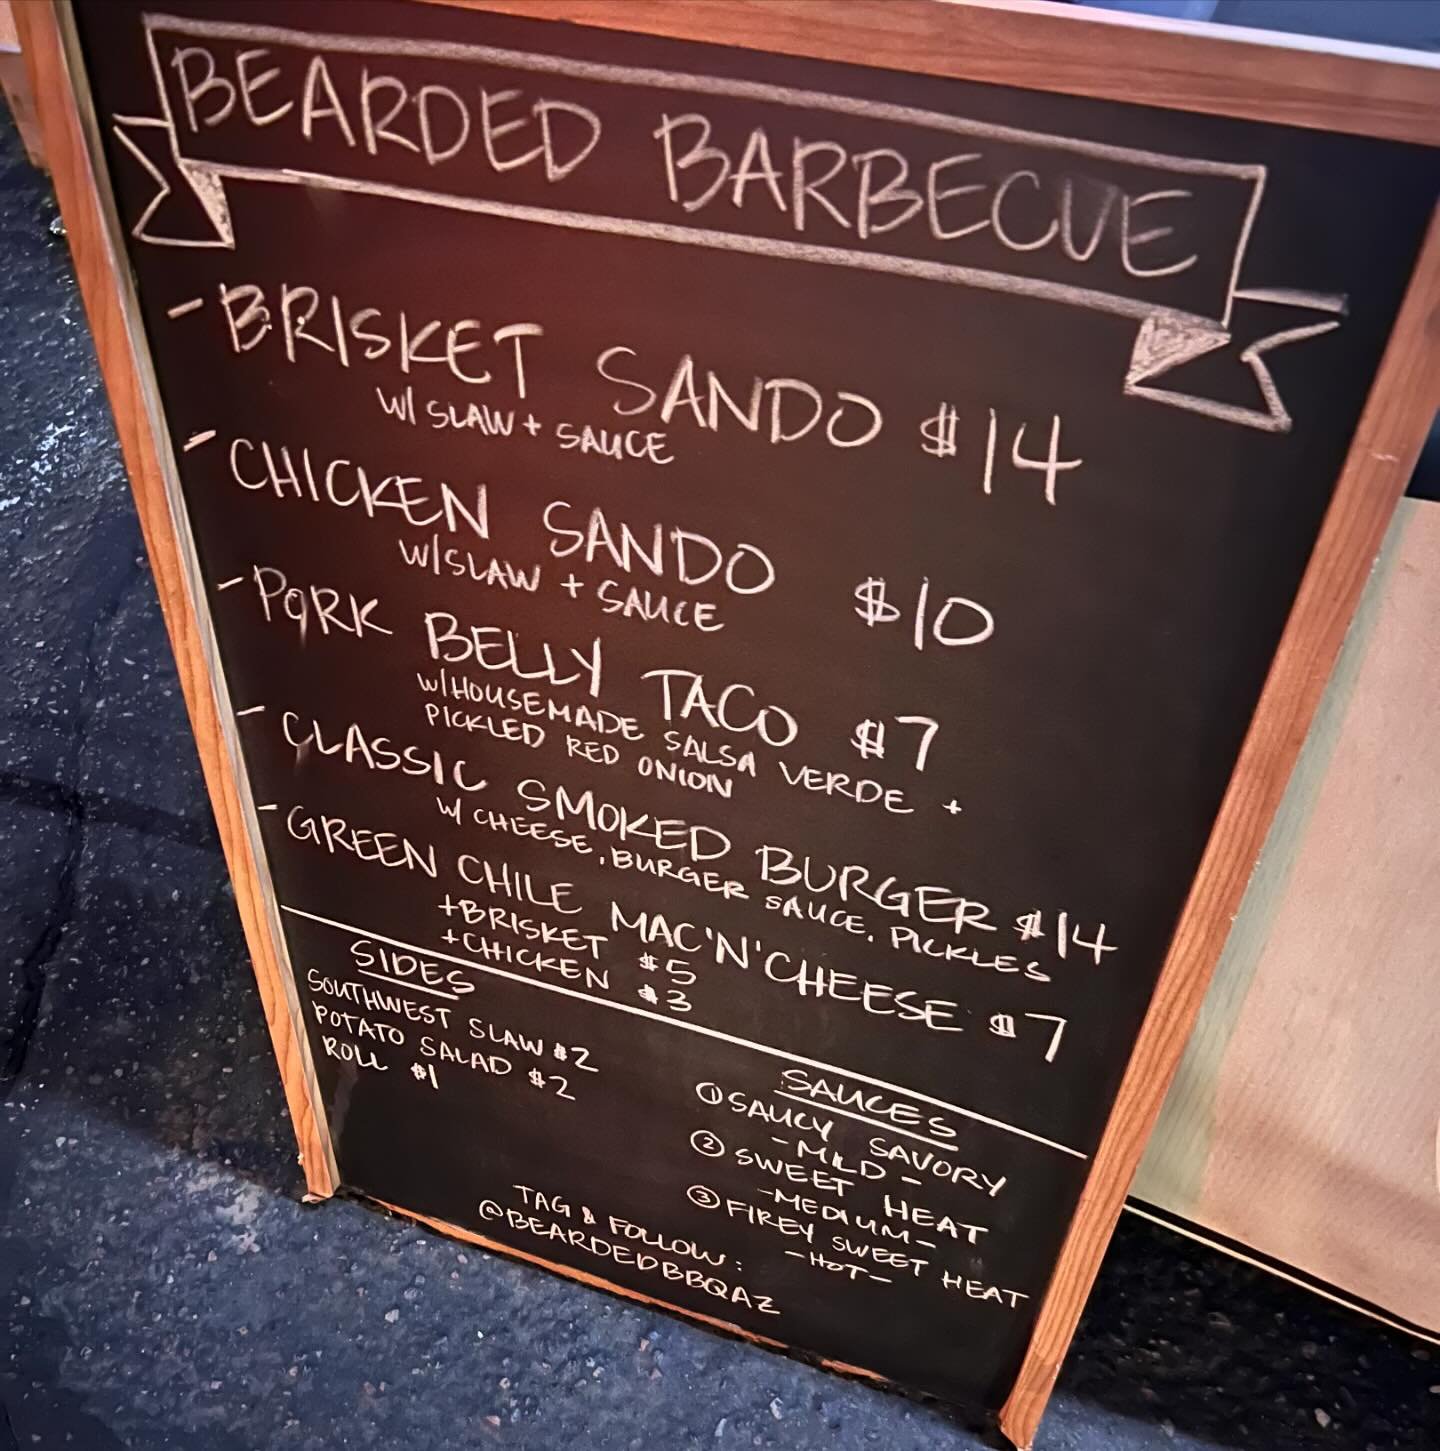 BEARDED BARBECUE
- BRISKET SANDO $14
W/ SLAW + SAUCE
- CHICKEN SANDO $10
W/SLAW + SAUCE
- PORK BELLY TACO $7
W/HOUSEMADE SALSA VERDE +
PICKLED RED ONION
- CLASSIC SMOKED BURGER $14
W/ CHEESE, BURGER SAUCE, PICKLES
- GREEN CHILE MAC'N'CHEESE $7
+BRISKET $5
+CHICKEN $3
SIDES
SOUTHWEST SLAW $2
POTATO SALAD $2
ROLL $1
SAUCES
① SAUCY SAVORY
- MILD -
② SWEET HEAT
- MEDIUM -
③ FIREY SWEET HEAT
- HOT -
TAG & FOLLOW:
@BEARDEDBBQAZ